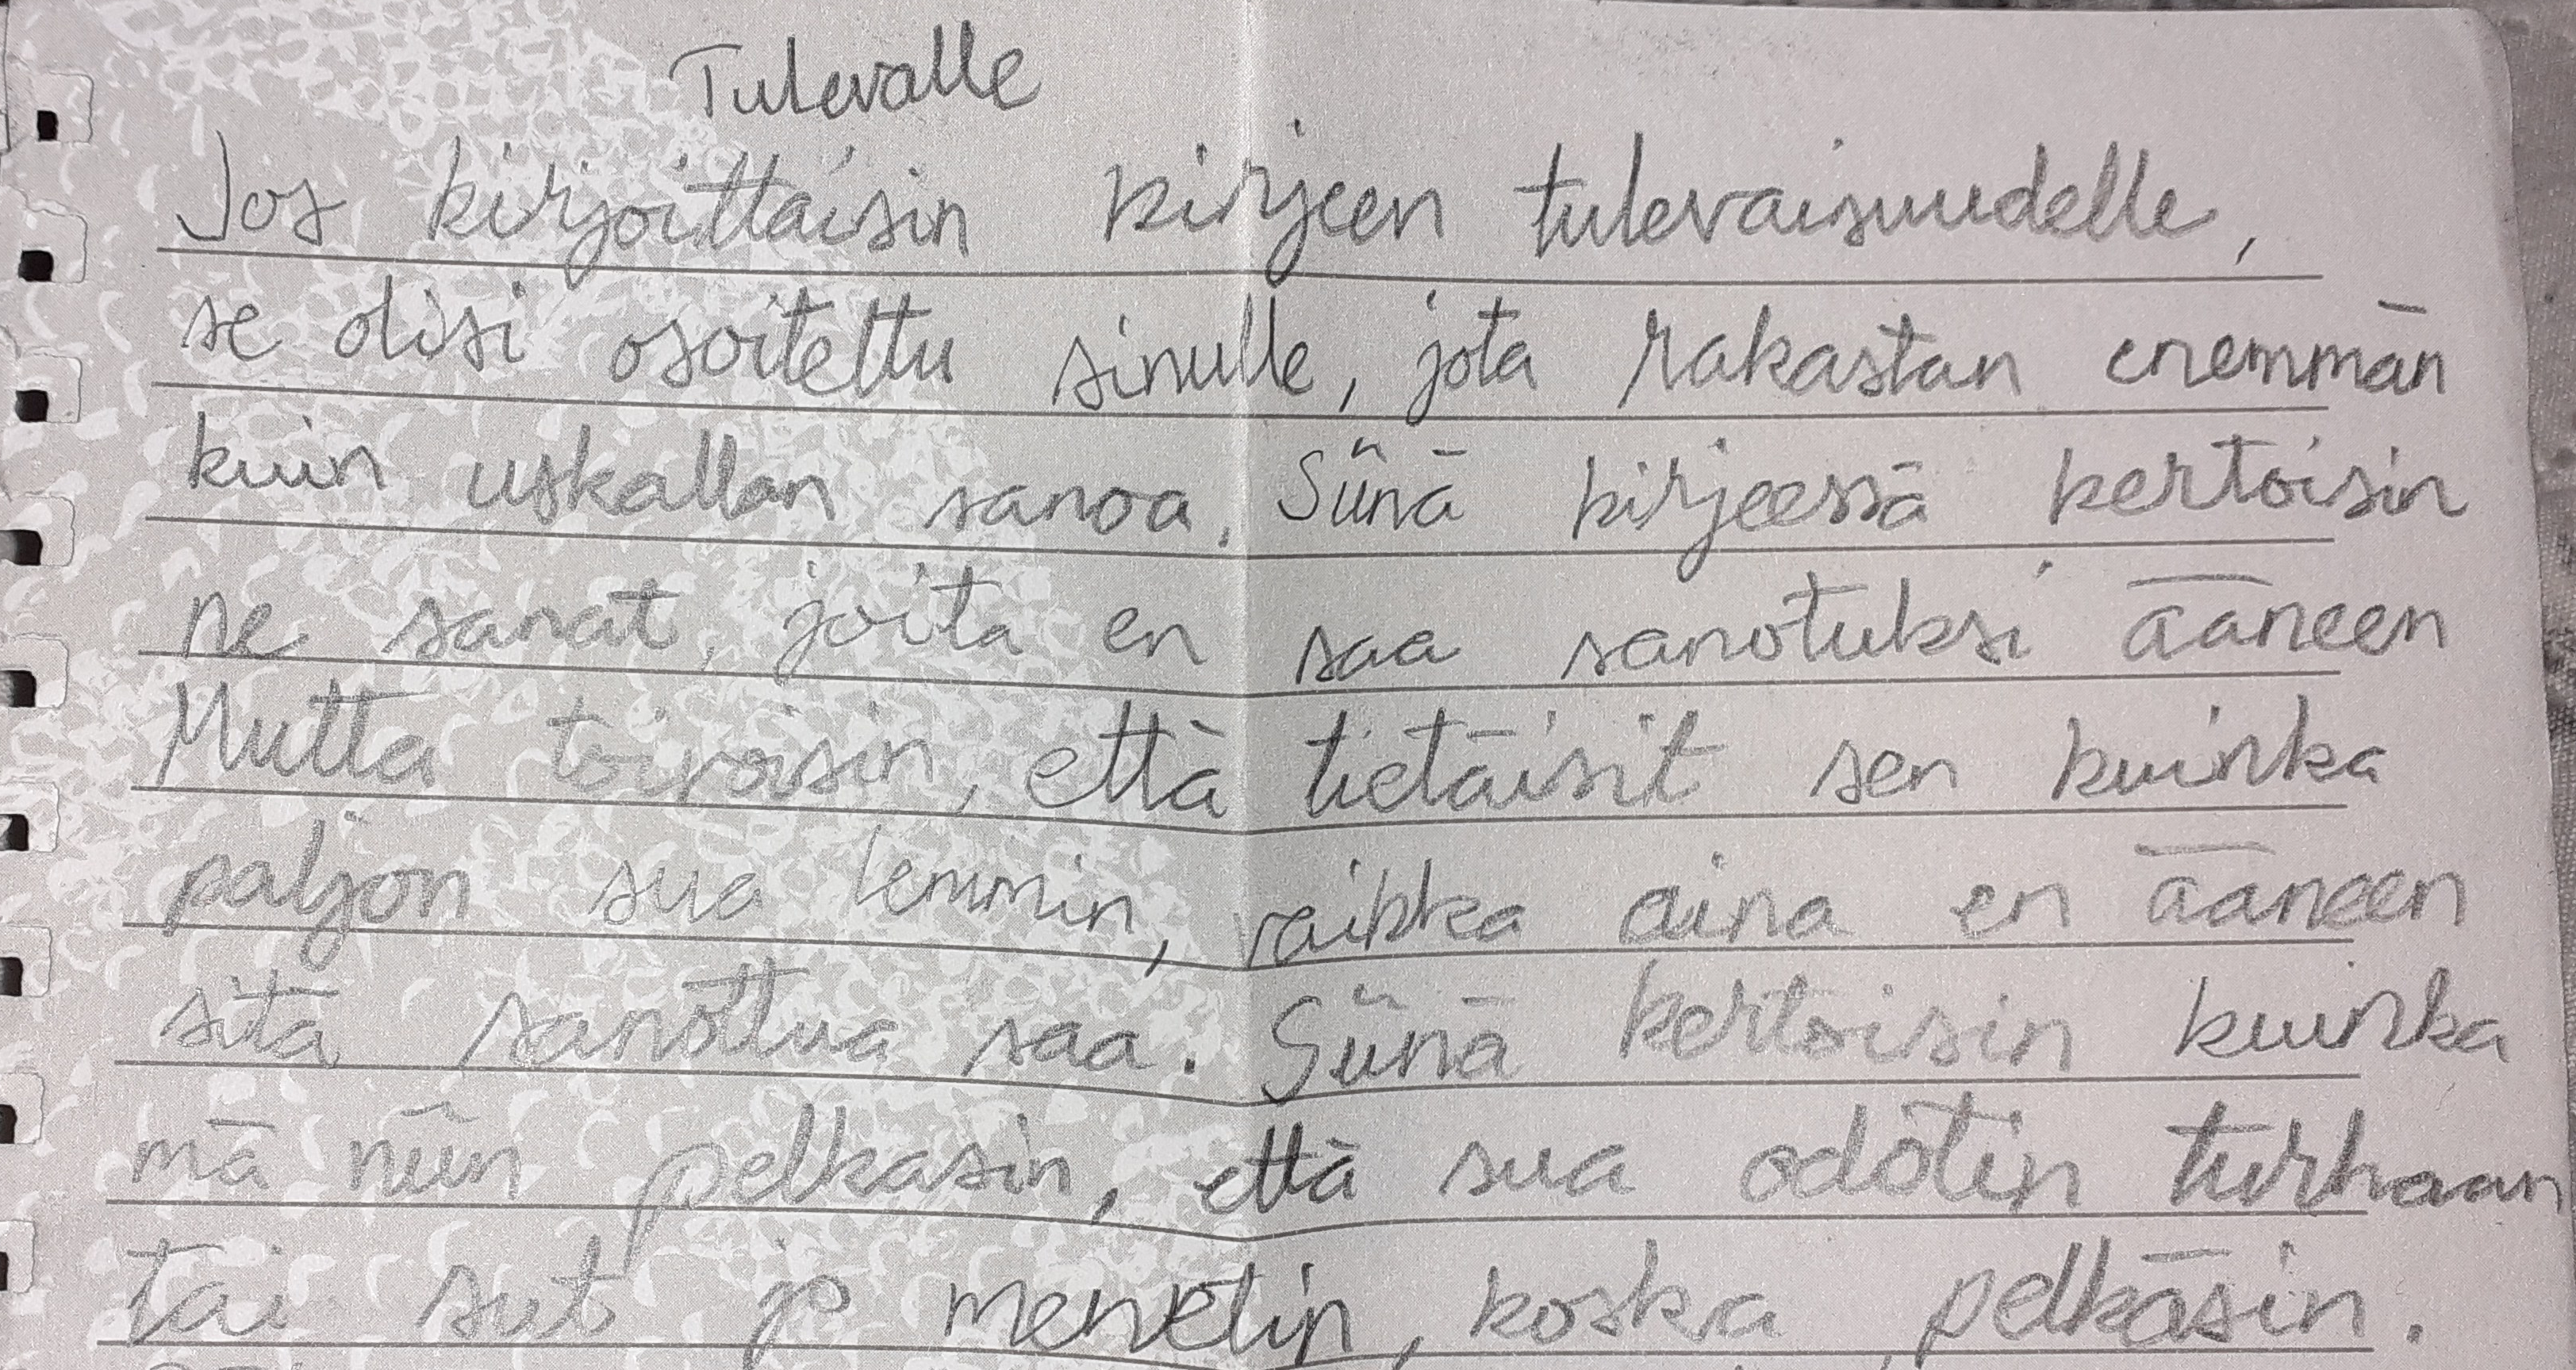 Tulevalle
Jos kirjoittaisin kirjeen tulevaisuudelle,
se olisi osoitettu sinulle, jota rakastan enemmän
kuin uskallan sanoa. Siinä kirjeessä kertoisin
ne sanat, joita en saa sanotuksi ääneen
Mutta toivoisin, että tietäisit sen kuinka
paljon sua lemmin, vaikka aina en ääneen
sitä sanottua saa. Siinä kertoisin kuinka
mä niin pelkasin, että sua odotin turhaan
tai sut jo menetin, koska pelkäsin.